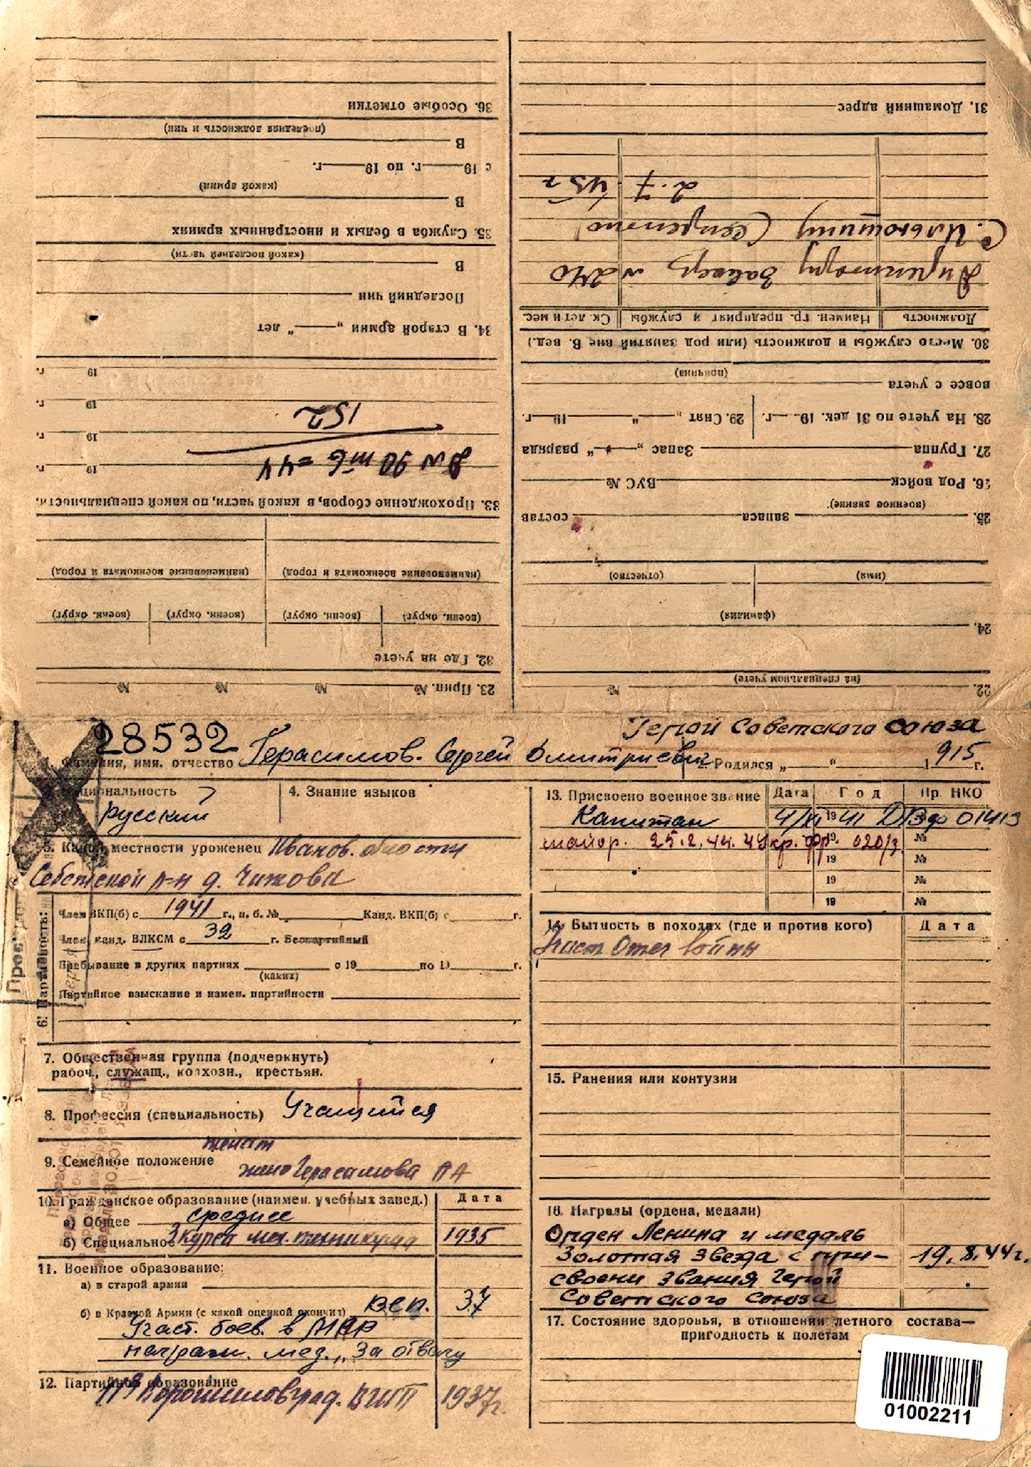 28532
Герой Советского Союза
1. Фамилия, имя, отчество Герасимов Сергей Дмитриевич
2. Родился „ “ 1915 г.
3. Национальность русский
4. Знание языков
5. Какой местности уроженец Иванов. области
р-н д. Чижово
6. Партийность:
Член ВКП(б) с 1941 г., п. б. № Канд. ВКП(б) с г.
Член, канд. ВЛКСМ с 32 г. Беспартийный
Пребывание в других партиях с 19 по 19 г.
(каких)
Партийное взыскание и измен. партийности
7. Общественная группа (подчеркнуть)
рабоч., служащ., колхозн., крестьян.
8. Профессия (специальность) Учащийся
9. Семейное положение женат
жена Герасимова
10. Гражданское образование (наимен. учебных завед.) Дата
а) Общее среднее
б) Специальное 3 курса мех. техникума 1935
11. Военное образование:
а) в старой армии
б) в Красной Армии (с какой оценкой окончил) 37
Участ. боев. в МНР
награж. мед. „За отвагу
12. Партийное образование
Ворошиловград. ВШП 1937г.
13. Присвоено военное звание Дата Год Пр. НКО
Капитан 4/XI 1941 01413
майор. 25.2.44. 19 020/ №
19 №
19 №
19 №
14. Бытность в походах (где и против кого) Дата
Участ Отеч войны
15. Ранения или контузии
16. Награды (ордена, медали)
Орден Ленина и медаль
Золотая Звезда с при- 19.8.44г.
своени звания Герой
Советского Союза
17. Состояние здоровья, в отношении летного состава—
пригодность к полетам
01002211
22. № (на специальном учете)
23. Прип. № № № №
24.
(фамилия)
(имя) (отчество)
25. запаса состав
(военное звание)
26. Род войск ВУС №
27. Группа Запас „ “ разряда
28. На учете по 31 дек. 19 г. 29. Снят „ “ 19 г.
вовсе с учета
(причина)
30. Место службы и должность (или род занятий вне В. вед.)
Должность Наимен. гр. предприят и службы Ск. лет и мес.
Директору завода №240
С. Ильюшину
2.7 45 г
31. Домашний адрес
32. Где на учете
(военн. округ) (военн. округ) (военн. округ) (военн. округ)
(наименование военкомата и город) (наименование военкомата и город)
33. Прохождение сборов, в какой части, по какой специальности.
19 г.
19 г.
152
19 г.
19 г.
34. В старой армии „ “ лет
Последний чин
В
(какой последней части)
35. Служба в белых и иностранных армиях
В
(какой армии)
с 19 г. по 19 г.
В
(последняя должность и чин)
36. Особые отметки